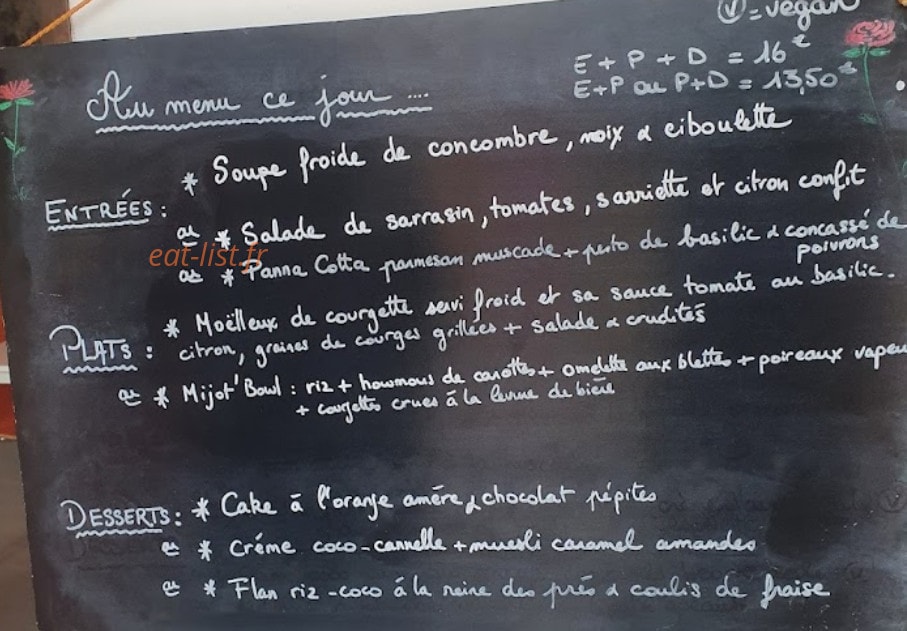 Ⓥ = vegan
E + P + D = 16€
E+P ou P+D = 13,50€
Au menu ce jour ....
* Soupe froide de concombre, noix & ciboulette
ENTRÉES :
ou * Salade de sarrasin, tomates, sarriette et citron confit
eat-list.fr
ou * Panna Cotta parmesan muscade + pesto de basilic & concassé de
poivrons
* Moëlleux de courgette servi froid et sa sauce tomate au basilic.
PLATS : citron, graines de courges grillées + salade & crudités
ou * Mijot'Bowl : riz + houmous de carottes + omelette aux blettes + poireaux vapeu
+ courgettes crues à la levure de bière
DESSERTS : * Cake à l'orange amère & chocolat pépites
ou * Crème coco-cannelle + muesli caramel amandes
ou * Flan riz-coco à la reine des prés & coulis de fraise